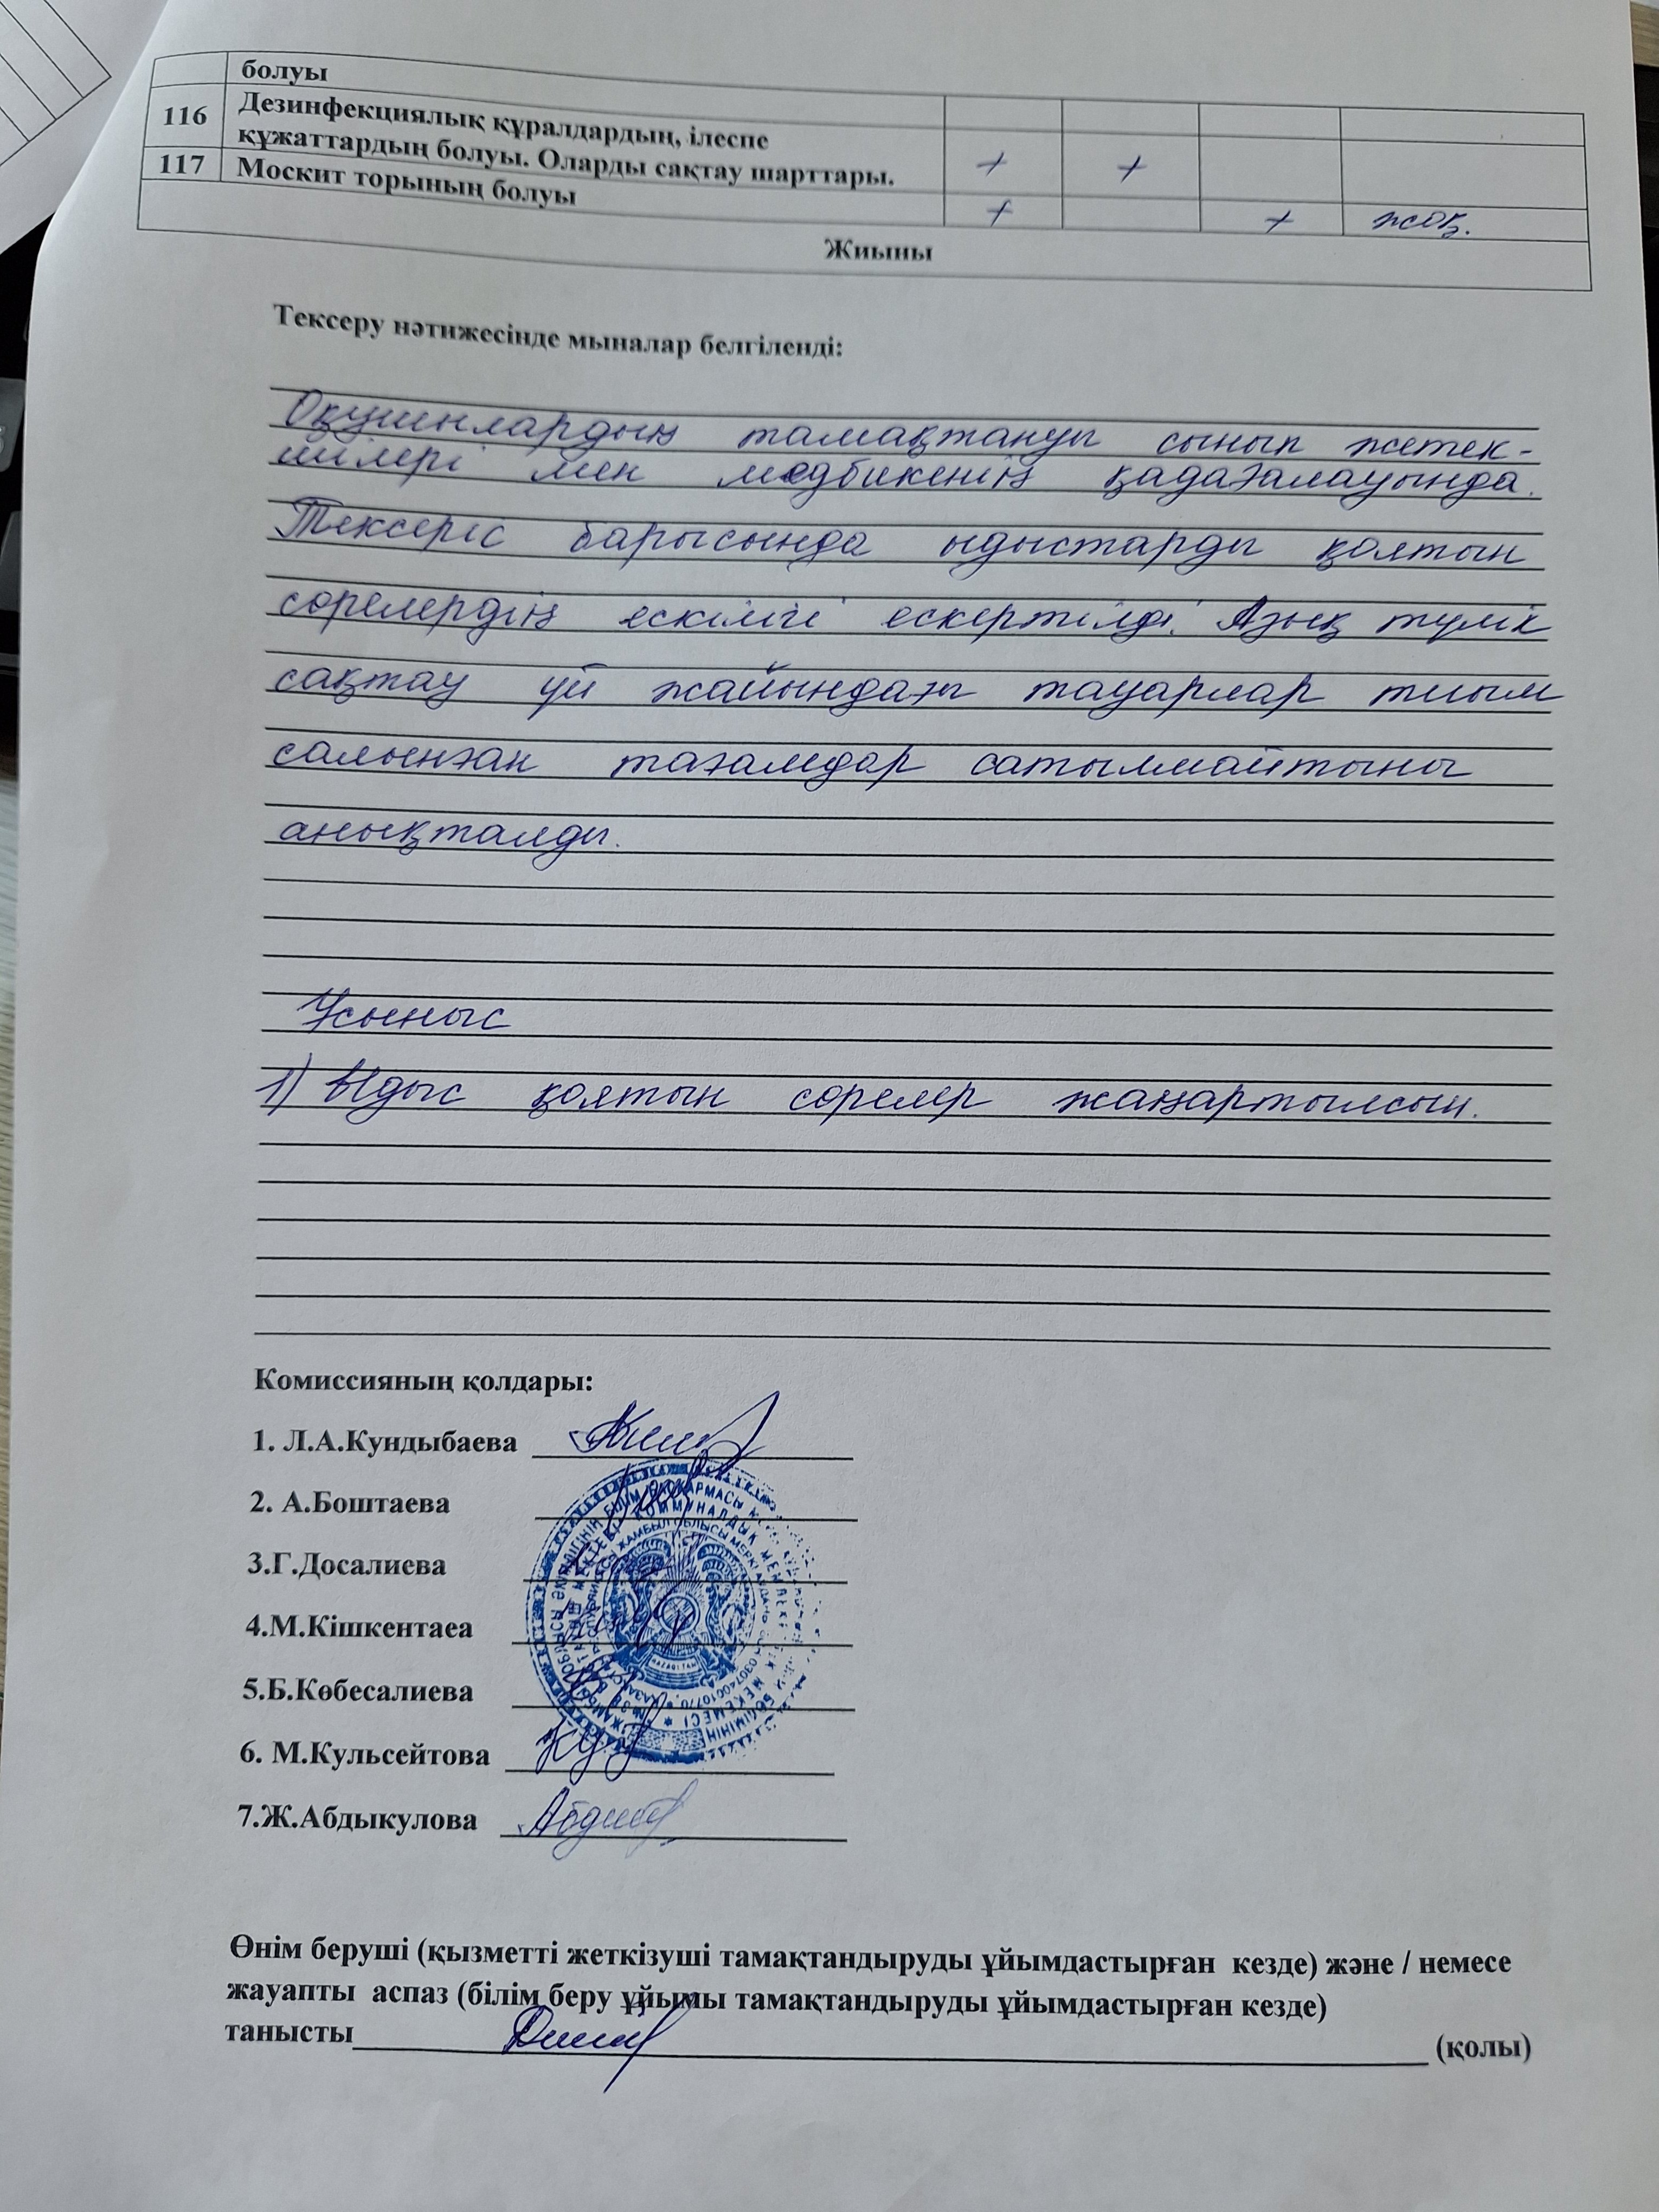 болуы
116 Дезинфекциялық құралдардың, ілеспе
құжаттардың болуы. Оларды сақтау шарттары. + +
117 Москит торының болуы + + жоқ.
Жиыны
Тексеру нәтижесінде мыналар белгіленді:
Оқушылардың тамақтануы сынып жетек-
шілері мен медбикенің қадағалауында.
Тексеріс барысында ыдыстарды қоятын
сөрелердің ескілігі ескертілді. Азық түлік
сақтау үй жайындағы тауарлар тиым
салынған тағамдар сатылмайтыны
анықталды.
Ұсыныс
1) Ыдыс қоятын сөрелер жаңартылсын.
Комиссияның қолдары:
1. Л.А.Кундыбаева
2. А.Боштаева
3.Г.Досалиева
4.М.Кішкентаеа
5.Б.Көбесалиева
6. М.Кульсейтова
7.Ж.Абдыкулова
Өнім беруші (қызметті жеткізуші тамақтандыруды ұйымдастырған кезде) және / немесе
жауапты аспаз (білім беру ұйымы тамақтандыруды ұйымдастырған кезде)
танысты (қолы)